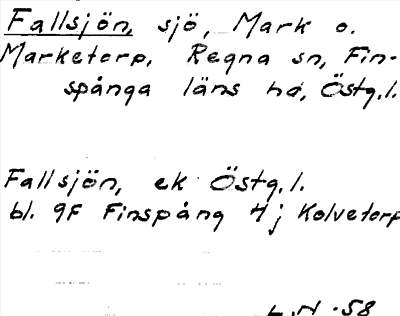 Fallsjön, sjö, Mark o.
Marketorp, Regna sn, Fin-
spånga läns hd, Östg.l.
Fallsjön, ek Östg.l.
bl. 9F Finspång 4j Kolvetorp
L.N. 58